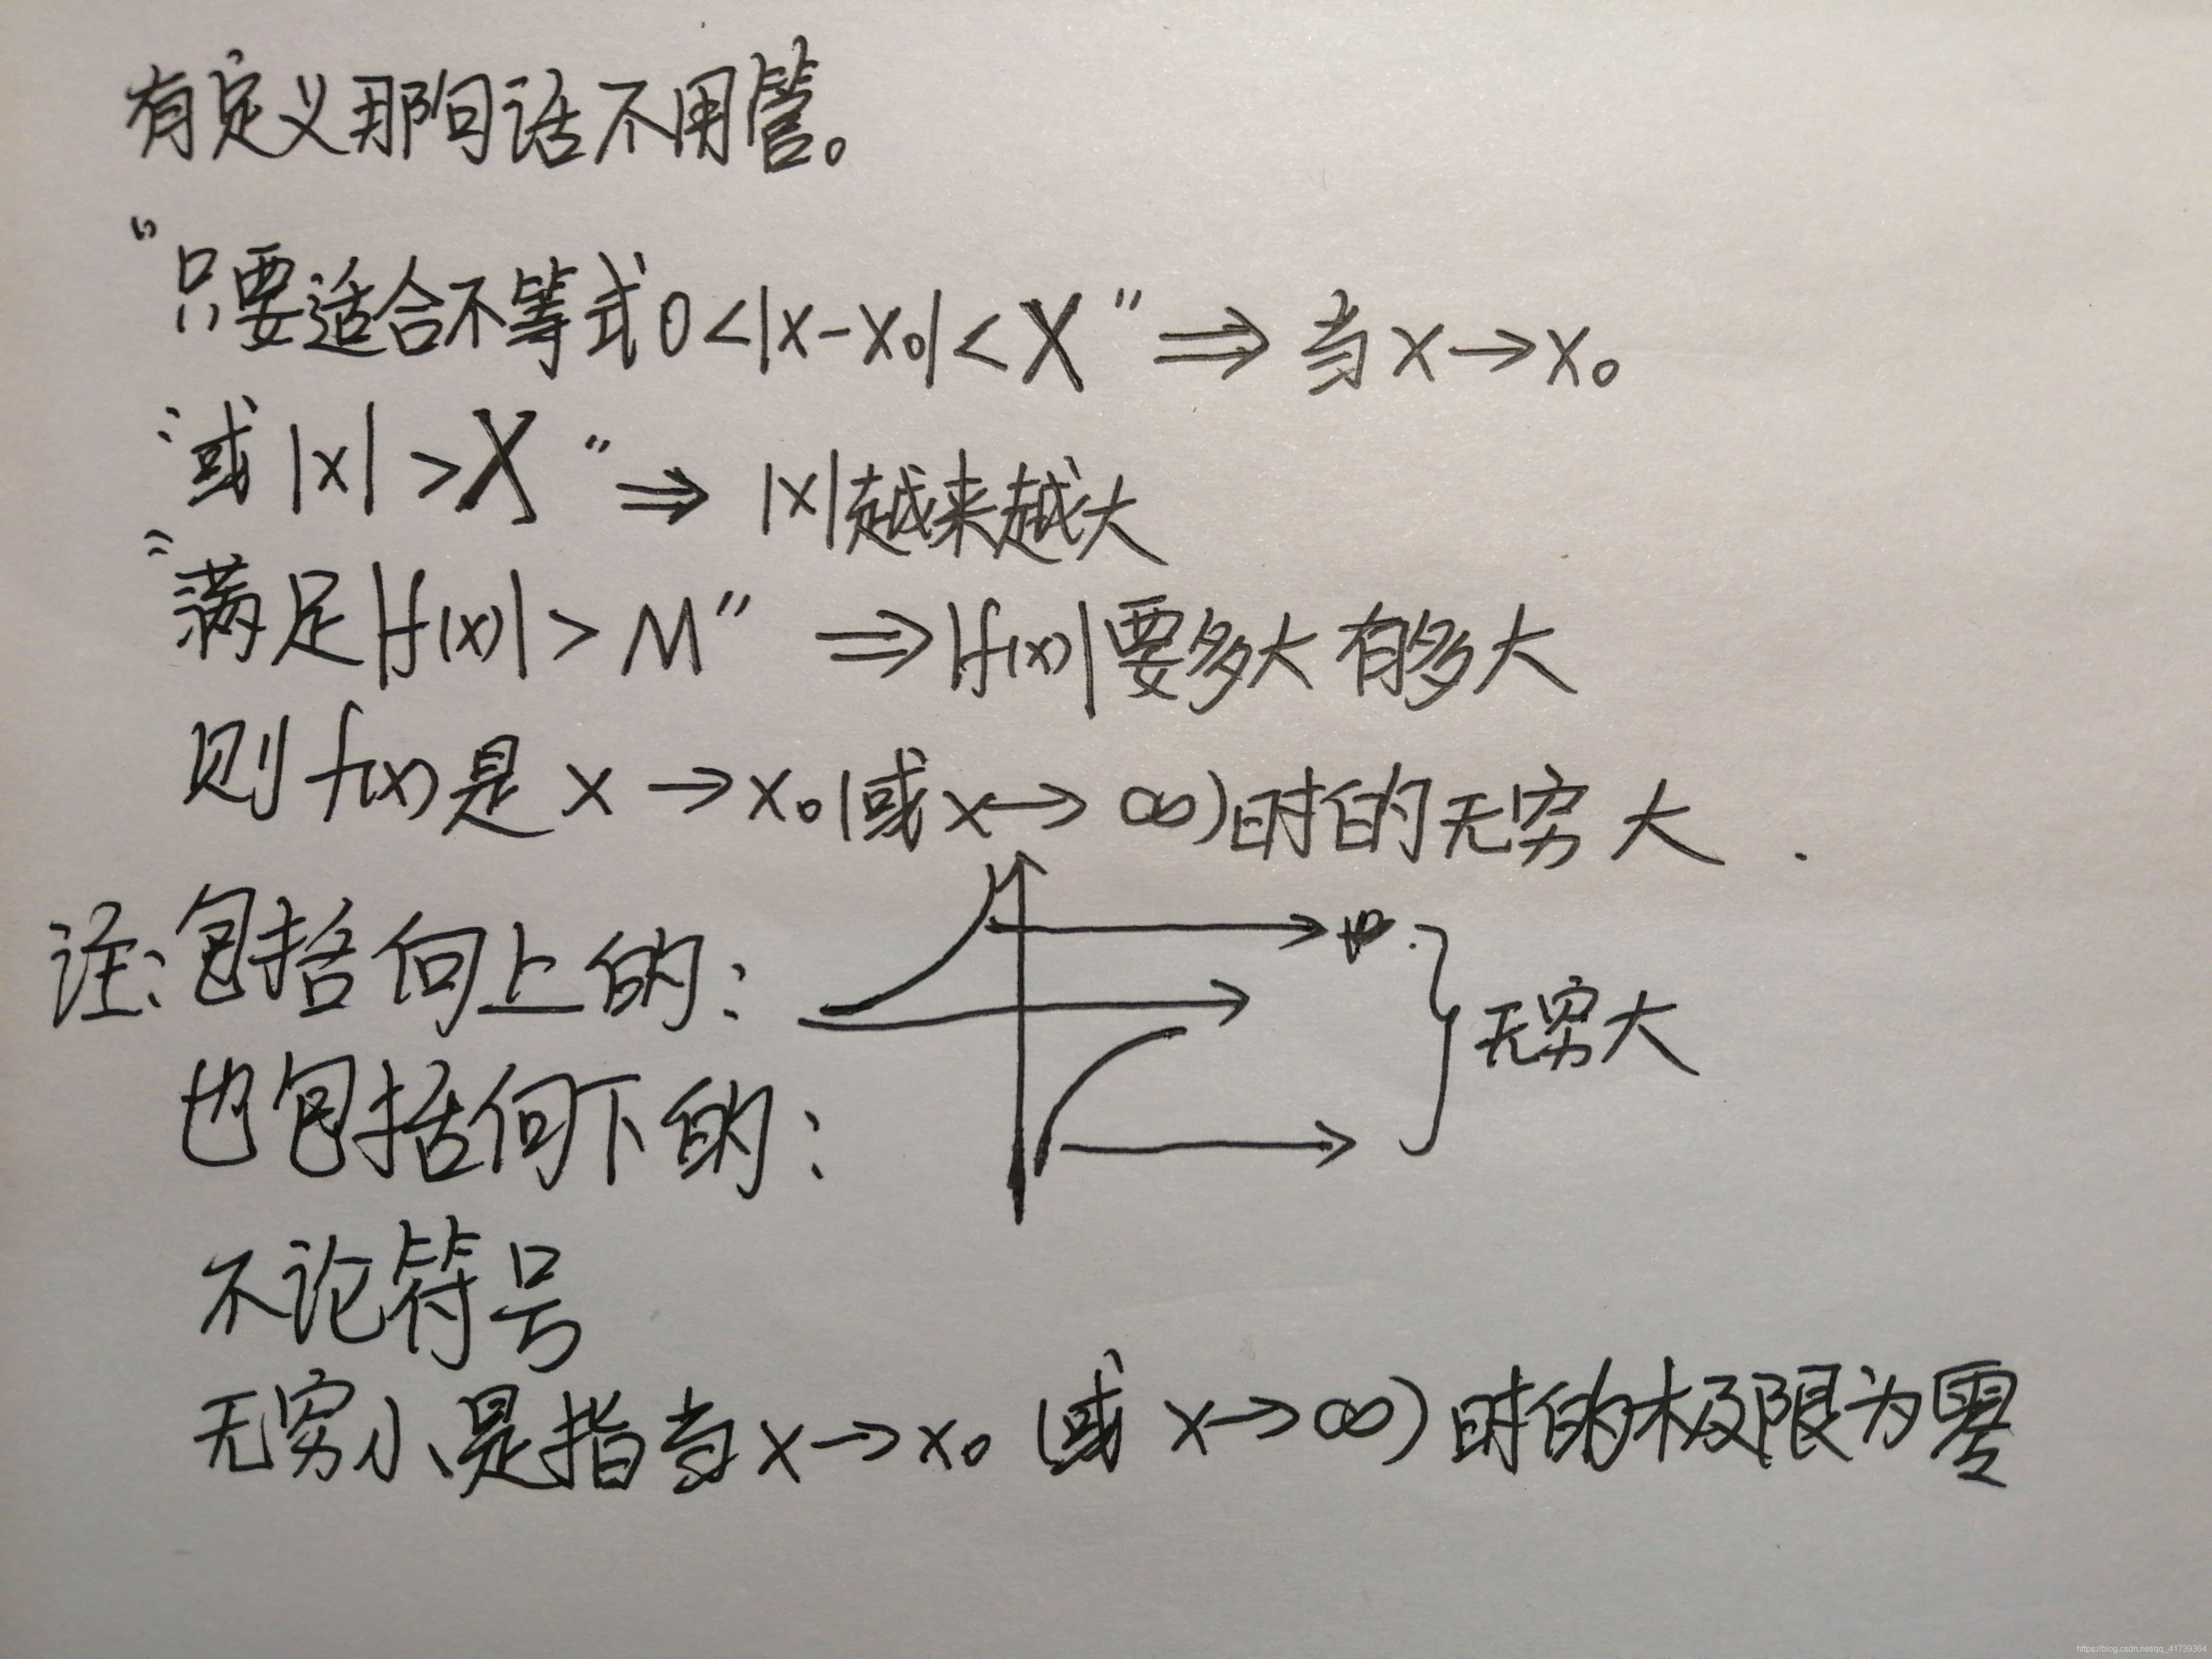 有定义那句话不用管。
"只要适合不等式0<|x-x₀|<X"⇒当x→x₀
"或|x|>X"⇒|x|越来越大
"满足|f(x)|>M"⇒|f(x)|要多大有多大
则f(x)是x→x₀(或x→∞)时的无穷大.
注:包括向上的:
无穷大
也包括向下的:
不论符号
无穷小是指当x→x₀(或x→∞)时的极限为零
https://blog.csdn.net/qq_41739364